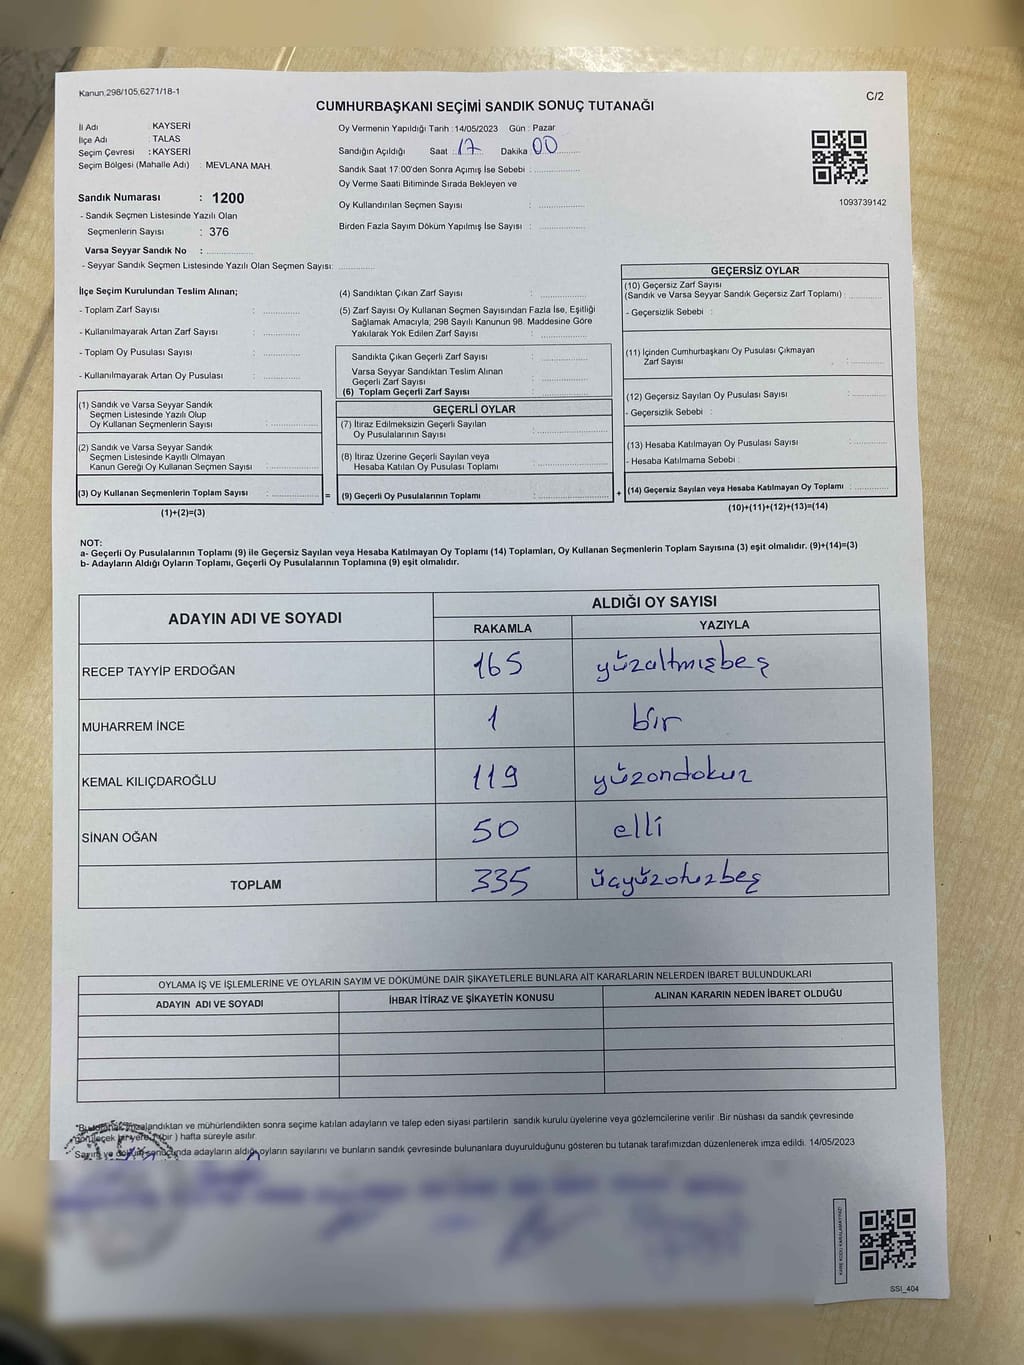 Kanun.298/105,6271/18-1
C/2
CUMHURBAŞKANI SEÇİMİ SANDIK SONUÇ TUTANAĞI
İl Adı : KAYSERİ
İlçe Adı : TALAS
Seçim Çevresi : KAYSERİ
Seçim Bölgesi (Mahalle Adı) : MEVLANA MAH.
Sandık Numarası : 1200
- Sandık Seçmen Listesinde Yazılı Olan
Seçmenlerin Sayısı : 376
Varsa Seyyar Sandık No :
- Seyyar Sandık Seçmen Listesinde Yazılı Olan Seçmen Sayısı:
Oy Vermenin Yapıldığı Tarih :14/05/2023 Gün : Pazar
Sandığın Açıldığı Saat : 17 Dakika 00
Sandık Saat 17:00'den Sonra Açımış İse Sebebi :
Oy Verme Saati Bitiminde Sırada Bekleyen ve
Oy Kullandırılan Seçmen Sayısı :
Birden Fazla Sayım Döküm Yapılmış İse Sayısı :
1093739142
İlçe Seçim Kurulundan Teslim Alınan;
- Toplam Zarf Sayısı :
- Kullanılmayarak Artan Zarf Sayısı :
- Toplam Oy Pusulası Sayısı :
- Kullanılmayarak Artan Oy Pusulası :
(1) Sandık ve Varsa Seyyar Sandık
Seçmen Listesinde Yazılı Olup
Oy Kullanan Seçmenlerin Sayısı :
(2) Sandık ve Varsa Seyyar Sandık
Seçmen Listesinde Kayıtlı Olmayan
Kanun Gereği Oy Kullanan Seçmen Sayısı :
(3) Oy Kullanan Seçmenlerin Toplam Sayısı :
(1)+(2)=(3)
=
(4) Sandıktan Çıkan Zarf Sayısı :
(5) Zarf Sayısı Oy Kullanan Seçmen Sayısından Fazla İse, Eşitliği
Sağlamak Amacıyla; 298 Sayılı Kanunun 98. Maddesine Göre
Yakılarak Yok Edilen Zarf Sayısı :
Sandıkta Çıkan Geçerli Zarf Sayısı :
Varsa Seyyar Sandıktan Teslim Alınan
Geçerli Zarf Sayısı :
(6) Toplam Geçerli Zarf Sayısı :
GEÇERLİ OYLAR
(7) İtiraz Edilmeksizin Geçerli Sayılan
Oy Pusulalarının Sayısı :
(8) İtiraz Üzerine Geçerli Sayılan veya
Hesaba Katılan Oy Pusulası Toplamı :
(9) Geçerli Oy Pusulalarının Toplamı :
+
GEÇERSİZ OYLAR
(10) Geçersiz Zarf Sayısı
(Sandık ve Varsa Seyyar Sandık Geçersiz Zarf Toplamı) :
- Geçersizlik Sebebi :
(11) İçinden Cumhurbaşkanı Oy Pusulası Çıkmayan
Zarf Sayısı :
(12) Geçersiz Sayılan Oy Pusulası Sayısı :
- Geçersizlik Sebebi :
(13) Hesaba Katılmayan Oy Pusulası Sayısı :
- Hesaba Katılmama Sebebi :
(14) Geçersiz Sayılan veya Hesaba Katılmayan Oy Toplamı :
(10)+(11)+(12)+(13)=(14)
NOT:
a- Geçerli Oy Pusulalarının Toplamı (9) ile Geçersiz Sayılan veya Hesaba Katılmayan Oy Toplamı (14) Toplamları, Oy Kullanan Seçmenlerin Toplam Sayısına (3) eşit olmalıdır. (9)+(14)=(3)
b- Adayların Aldığı Oyların Toplamı, Geçerli Oy Pusulalarının Toplamına (9) eşit olmalıdır.
ADAYIN ADI VE SOYADI ALDIĞI OY SAYISI
RAKAMLA YAZIYLA
RECEP TAYYİP ERDOĞAN 165 yüzaltmışbeş
MUHARREM İNCE 1 bir
KEMAL KILIÇDAROĞLU 119 yüzondokuz
SİNAN OĞAN 50 elli
TOPLAM 335 üçyüzotuzbeş
OYLAMA İŞ VE İŞLEMLERİNE VE OYLARIN SAYIM VE DÖKÜMÜNE DAİR ŞİKAYETLERLE BUNLARA AİT KARARLARIN NELERDEN İBARET BULUNDUKLARI
ADAYIN ADI VE SOYADI İHBAR İTİRAZ VE ŞİKAYETİN KONUSU ALINAN KARARIN NEDEN İBARET OLDUĞU
ve mühürlendikten sonra seçime katılan adayların ve talep eden siyasi partilerin sandık kurulu üyelerine veya gözlemcilerine verilir .Bir nüshası da sandık çevresinde
bir ) hafta süreyle asılır.
Sayım ve döküm sonucunda adayların aldığı oyların sayılarını ve bunların sandık çevresinde bulunanlara duyurulduğunu gösteren bu tutanak tarafımızdan düzenlenerek imza edildi. 14/05/2023
SSI_404